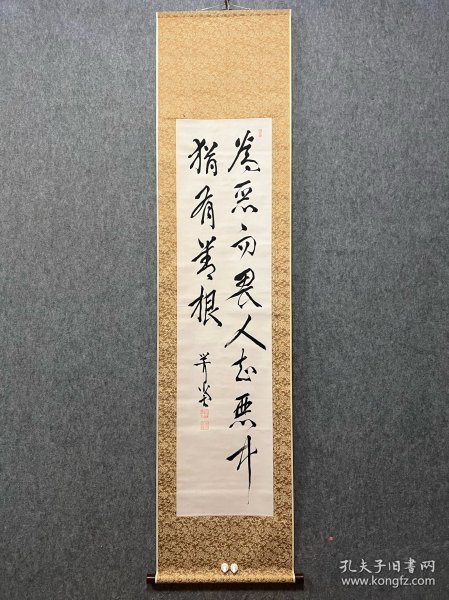 為惡而畏人知惡中
猶有善根
孔夫子旧书网
www.kongfz.com